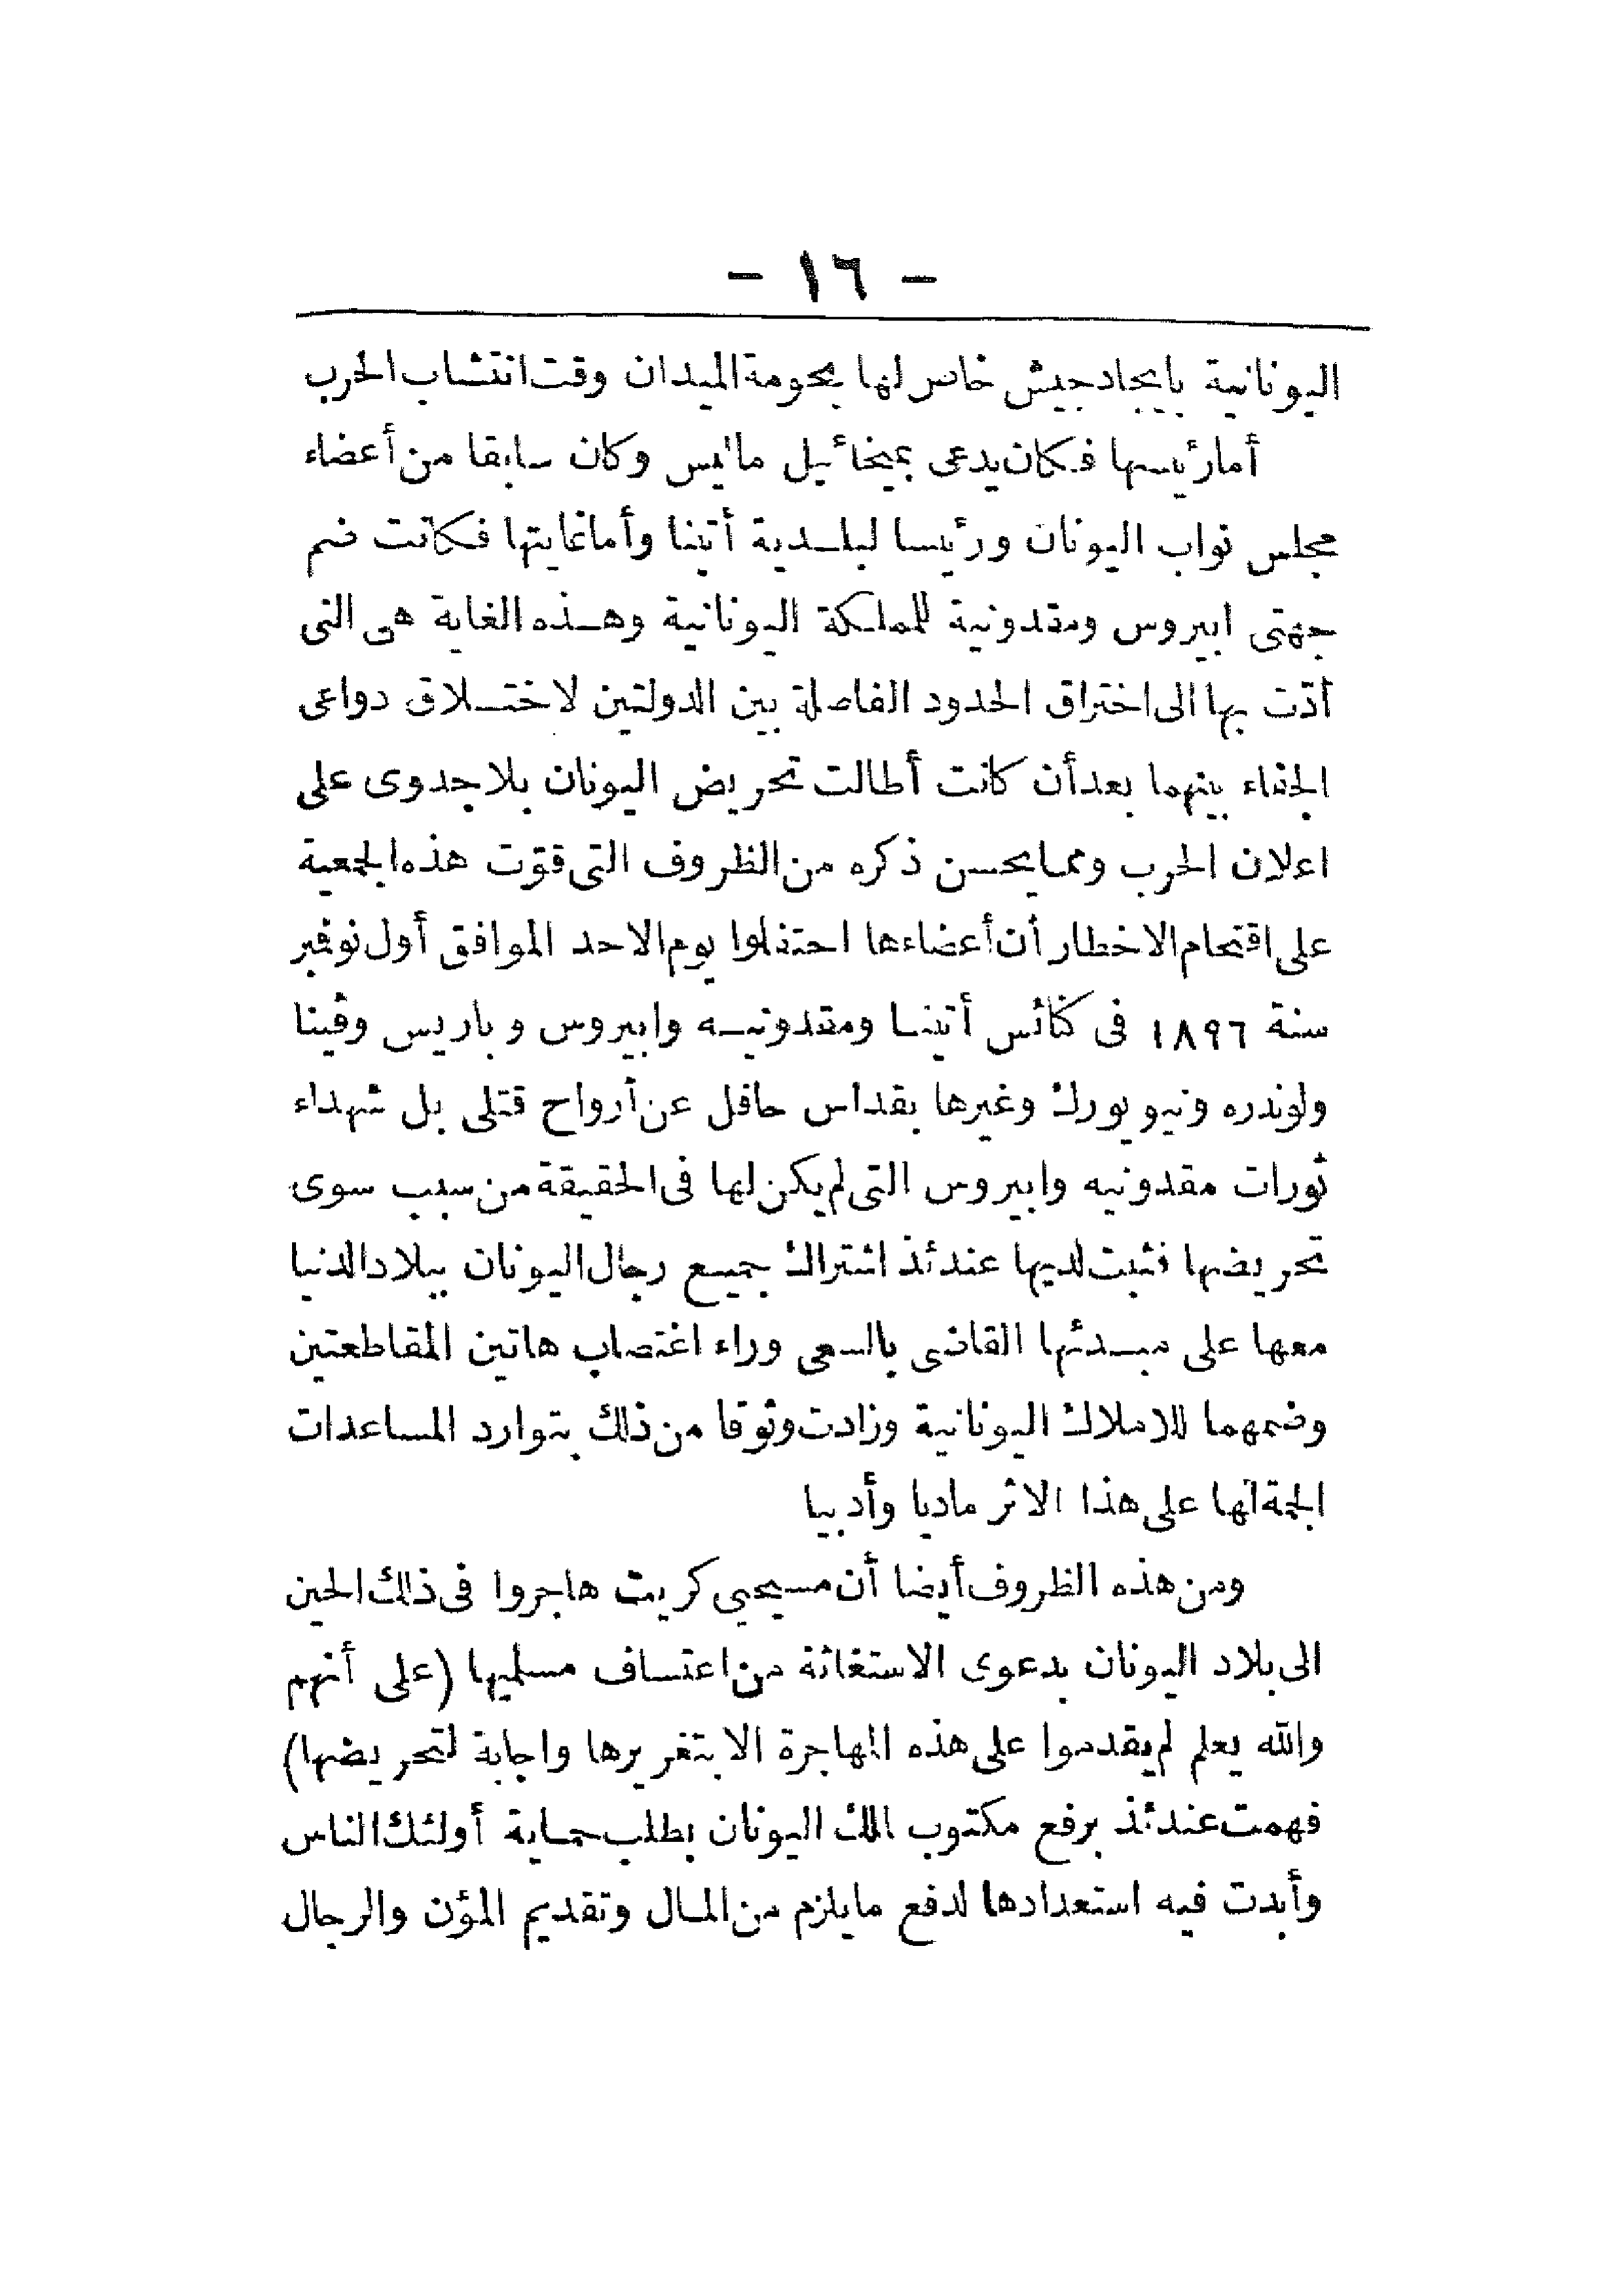 - ١٦ -
اليونانية بايجاد جيش خاص لها بحومة الميدان وقت انتشاب الحرب
أما رئيسها فكان يدعى بميخائيل مائيس وكان سابقا من أعضاء
مجلس نواب اليونان ورئيسا لبلدية أتينا وأما غايتها فكانت ضم
جهتى ابيروس ومقدونية للمملكة اليونانية وهذه الغاية هى التى
أدّت بها الى اختراق الحدود الفاصلة بين الدولتين لاختلاق دواعى
الجفاء بينهما بعد أن كانت أطالت تحريض اليونان بلا جدوى على
اعلان الحرب ومما يحسن ذكره من الظروف التى قوّت هذه الجمعية
على اقتحام الاخطار أن أعضاءها احتفلوا يوم الاحد الموافق أول نوفمبر
سنة ١٨٩٦ فى كنائس أتينا ومقدونيه وابيروس وباريس وڤينا
ولوندره ونيويورك وغيرها بقداس حافل عن أرواح قتلى بل شهداء
ثورات مقدونيه وابيروس التى لم يكن لها فى الحقيقة من سبب سوى
تحريضها فثبت لديها عندئذ اشتراك جميع رجال اليونان ببلاد الدنيا
معها على مبدئها القاضى بالسعى وراء اغتصاب هاتين المقاطعتين
وضمهما للاملاك اليونانية وزادت وثوقا من ذلك بتوارد المساعدات
الجمة لها على هذا الاثر ماديا وأدبيا
ومن هذه الظروف أيضا أن مسيحيى كريت هاجروا فى ذلك الحين
الى بلاد اليونان بدعوى الاستغاثة من اعتساف مسلميها (على أنهم
والله يعلم لم يقدموا على هذه المهاجرة الا بتغريرها واجابة لتحريضها)
فهمت عندئذ برفع مكتوب الملك اليونان بطلب حماية أولئك الناس
وأبدت فيه استعدادها لدفع ما يلزم من المال وتقديم المؤن والرجال